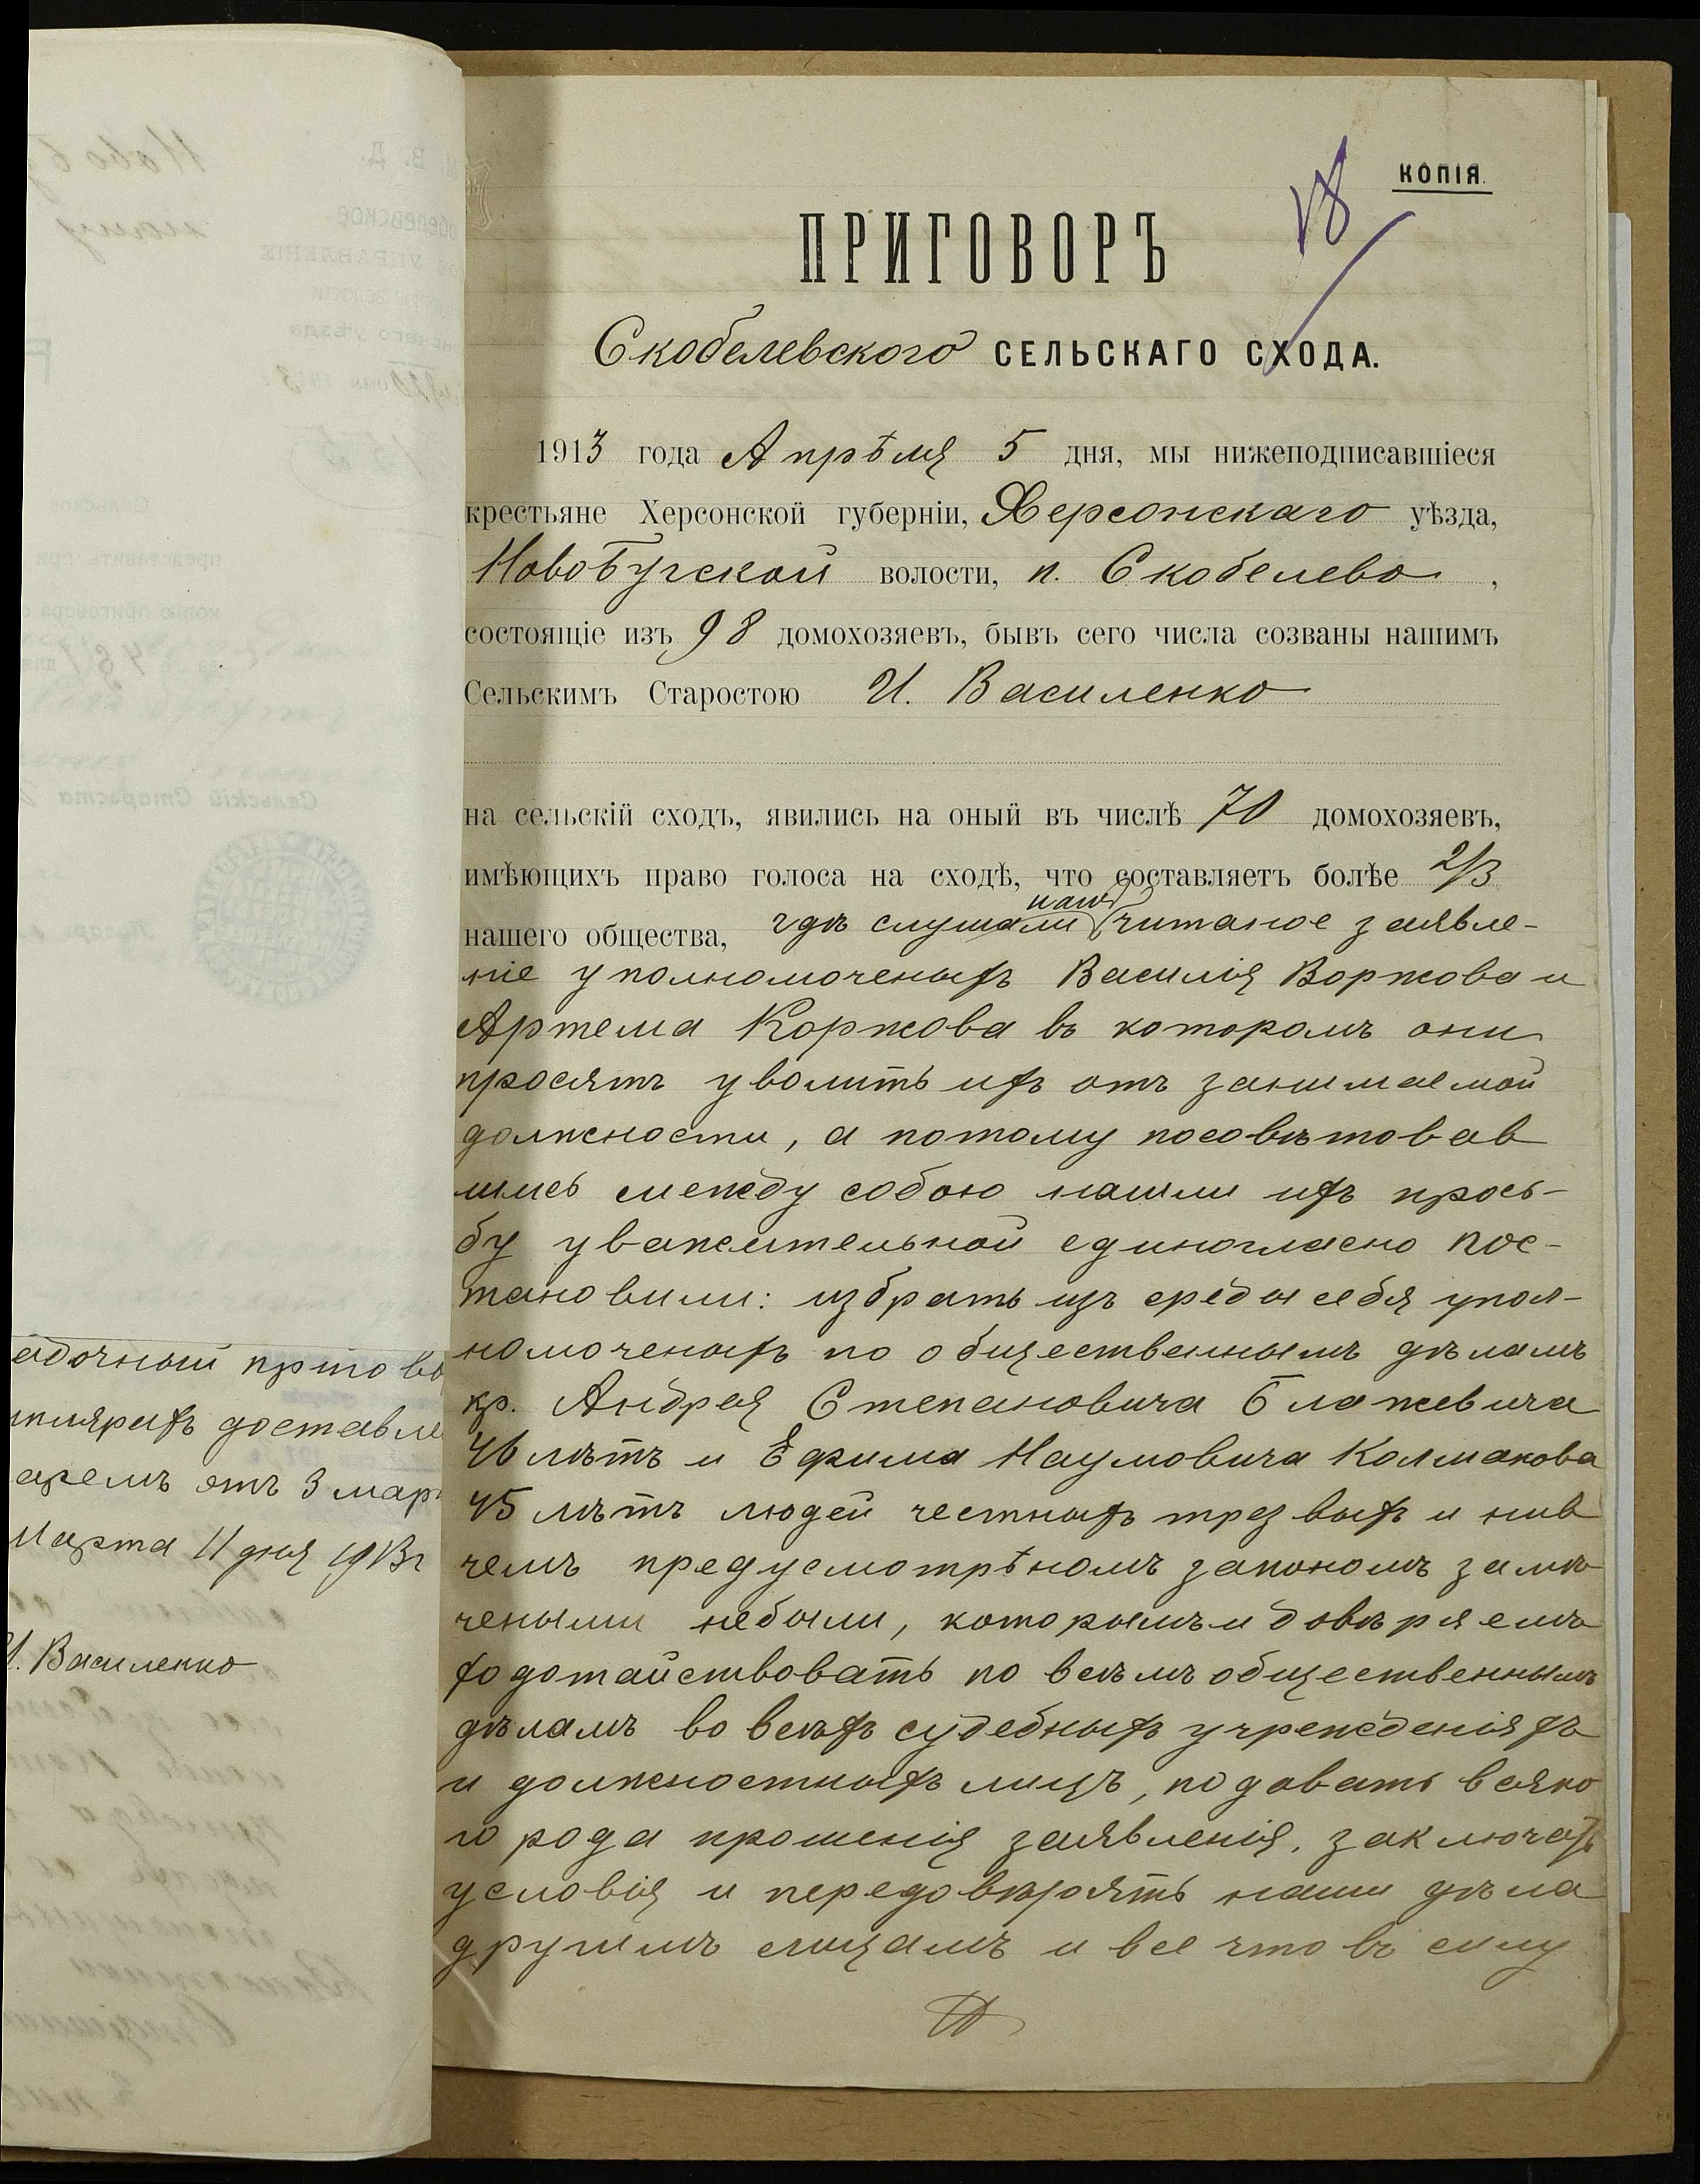 КОПІЯ.
18
ПРИГОВОРЪ
Скобелевского СЕЛЬСКАГО СХОДА.
1913 года Апрѣля 5 дня, мы нижеподписавшіеся
крестьяне Херсонской губерніи, Херсонскаго уѣзда,
НовоБугской волости, п. Скобелево,
состоящіе изъ 98 домохозяевъ, бывъ сего числа созваны нашимъ
Сельскимъ Старостою И. Василенко
на сельскій сходъ, явились на оный въ числѣ 70 домохозяевъ,
имѣющихъ право голоса на сходѣ, что составляетъ болѣе 2/3
нашего общества, гдѣ слушали намъ читаное заявле-
ніе уполномоченыхъ Василія Воржова и
Артема Коржова въ которомъ они
просятъ уволить ихъ отъ занимаемой
должности, а потому посовѣтовав
шись между собою нашли ихъ прось-
бу уважительной единогласно пос-
тановили: избрать изъ среды себя упол-
номоченыхъ по общественнымъ дѣламъ
кр. Андрея Степановича Блажевича
46 лѣтъ и Ефима Наумовича Колмакова
45 лѣтъ людей честныхъ трезвыхъ и нив
чемъ предусмотрѣномъ закономъ замѣ
чеными небыли, которымъ и довѣряемъ
ходотайствовать по всѣмъ общественнымъ
дѣламъ во всѣхъ судебныхъ учрежденіяхъ
и должностныхъ лицъ, подавать всяко
го рода прошенія заявленія, заключать
условія и передовѣрять наши дѣла
другимъ лицамъ и все что въ силу
адочный пригово
достав
отъ 3 мар
Марта 11 дня 1913 г
И. Василенко